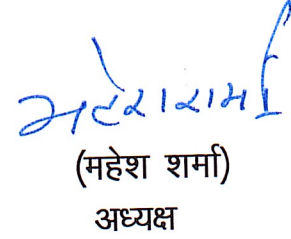 महेश शर्मा
(महेश शर्मा)
अध्यक्ष